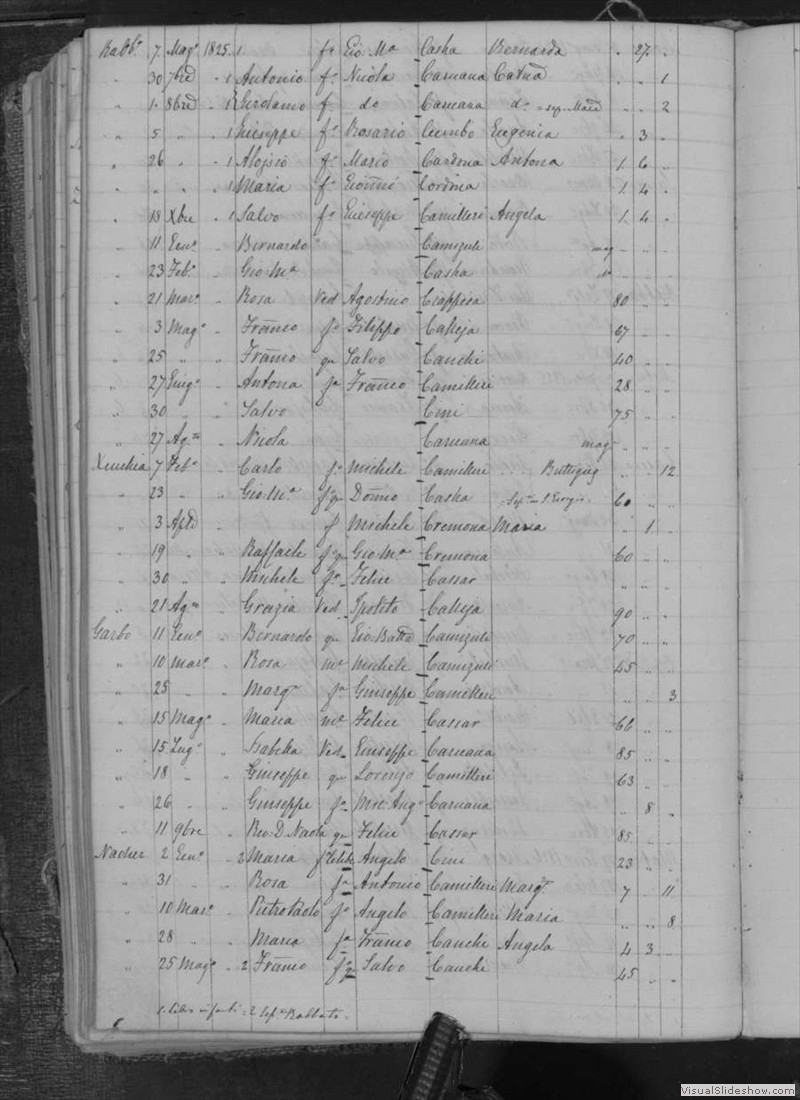 Rabb.º 7 Mag.º 1825. 1. fº Gio Mª Casha Bernarda . 27.
" 30 7bre . 1 Antonio fº Nicola Caruana Catña . . 1
" 1. 8bre . 1 Girolamo f do Caruana dº = sep. . . 2
" 5 " . 1 Giuseppe fº Rosario Cumbo Eugenia . 3 .
" 26 " . 1 Aloisio fº Mario Cardona Antona 1. 6 .
" " " 1 Maria fª Gionni Cordina 1. 4 .
" 18 Xbre . 1 Salvo fº Giuseppe Camilleri Angela 1. 4 .
" 11 Genº . Bernardo Camizuli mag
" 23 Febº . Gio Mª Casha
" 21 Marº . Rosa Ved Agostino Ciappara 80 . .
" 3 Magº . Franco fº Filippo Calleja 67 . .
" 25 " " Franco qu Salvo Cauchi 40 . .
" 27 Giugº . Antona fª Franco Camilleri 28 . .
" 30 " . Salvo Cini 75 . .
" 27 Agto . Nicola Caruana mag
Xeuchia 7 Febº . Carlo fº Michele Camilleri .... Buttigieg . . 12
" 23 " . Gio Mª fº qu Donno Casha Sepº in S. Giorgio. 60 . .
" 3 Aple . f Michele Cremona Maria . 1 .
" 19 " . Raffaele fº qu Gio Mª Cremona 60 . .
" 30 " . Michele fº Felice Cassar . . .
" 21 Agto . Grazia Ved Ipolito Calleja 90 . .
Garbo 11 Genº . Bernardo qu Gio Batta Camizuli 70 . .
" 10 Marº . Rosa me Michele Camizuli 45 . .
" 25 " . Margª fª Giuseppe Camilleri . . 3
" 15 Magº . Maria me Felice Cassar 66 . .
" 15 Lugº . Isabella Ved Giuseppe Caruana 85 . .
" 18 " " Giuseppe qu Lorenzo Camilleri 63 . .
" 26 " . Giuseppe fº Mic Angº Caruana . 8 .
" 11 9bre . Rev. D. Nicola qu Felice Cassar 85 . .
Nadur 2 Genº . 2 Maria Angelo Cini 23 . .
" 31 . Rosa fª Antonio Camilleri Margª 7 . 11
" 10 Marº . Pietro Paolo fº Angelo Camilleri Maria . . 8
" 28 " . Maria fª Franco Cauchi Angela 4 3 .
" 25 Magº . 2 Franco fº qu Salvo Cauchi 45 . .
1. Libro infanti = 2 Sepº Rabbato.
VisualSlideshow.com